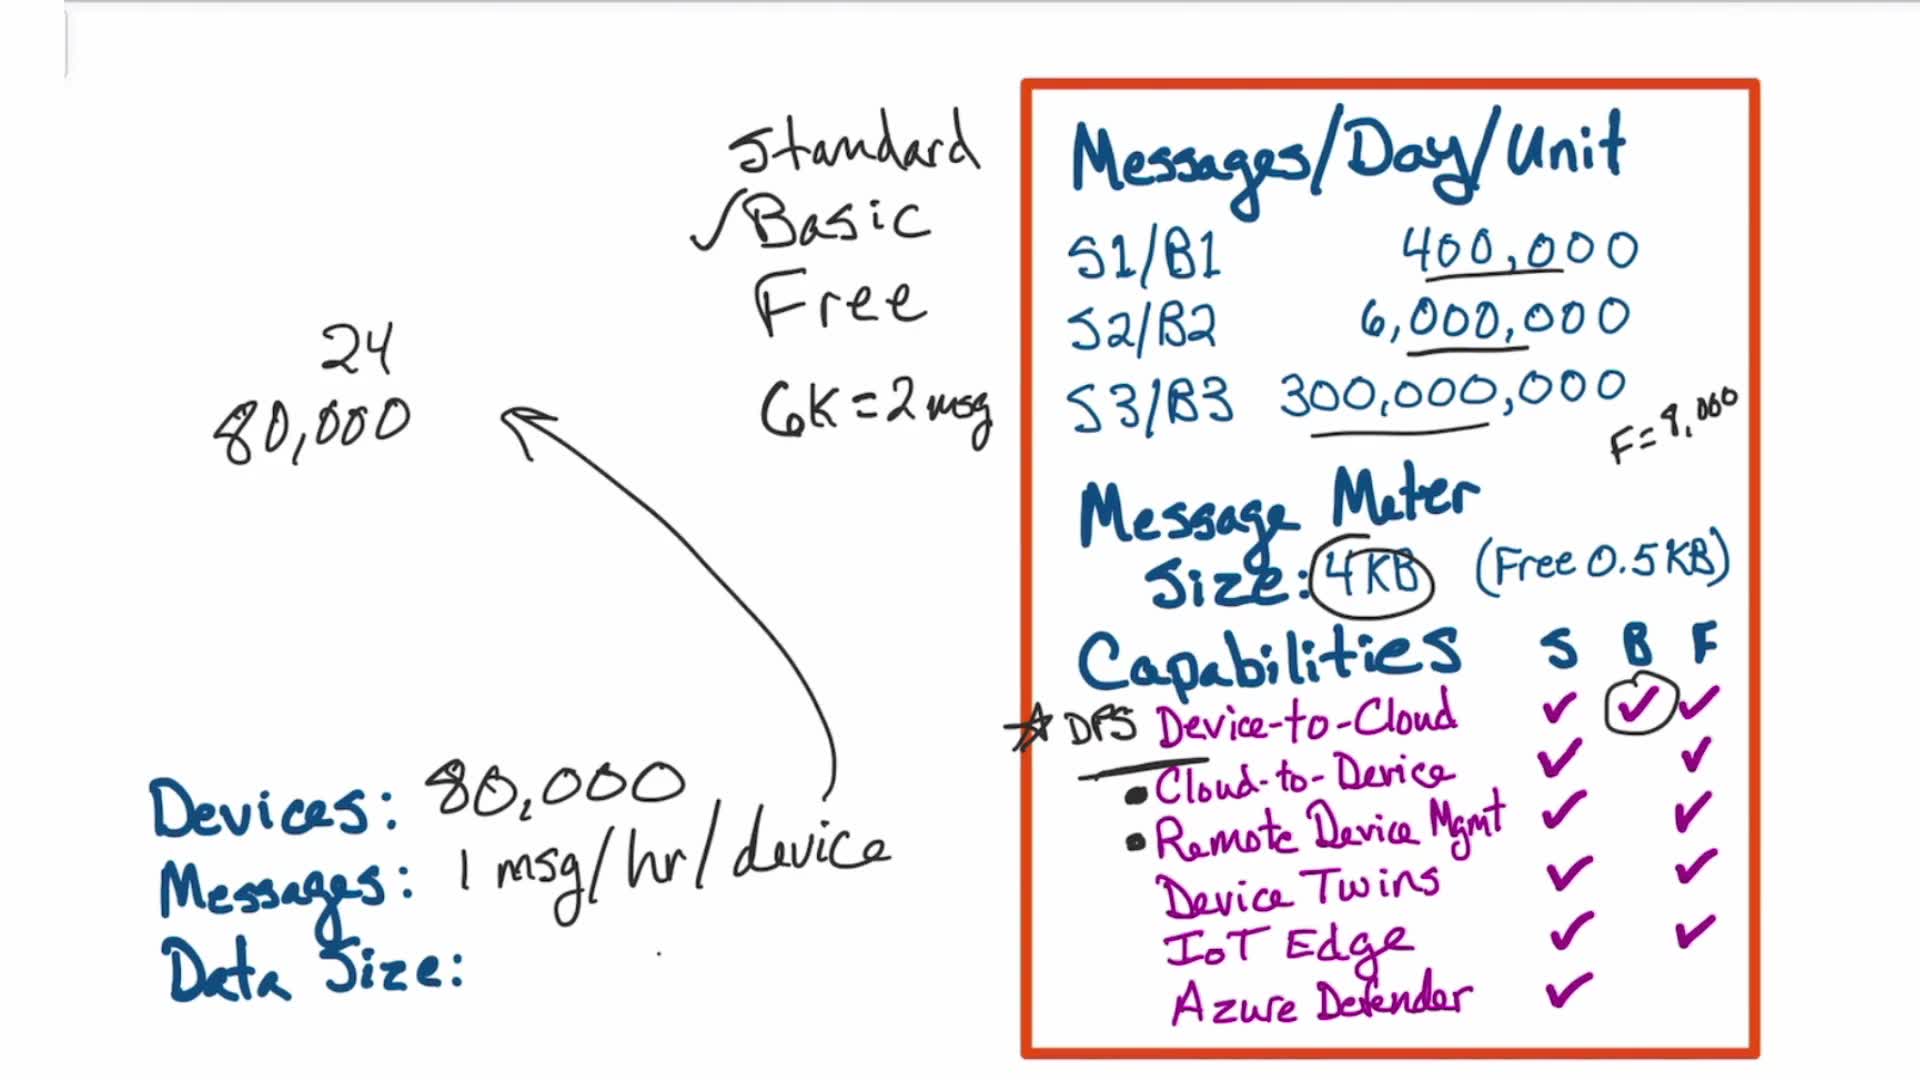 Standard
✓Basic
Free
6K = 2 msg
24
80,000
Devices: 80,000
Messages: 1 msg/hr/device
Data Size:
Messages/Day/Unit
S1/B1 400,000
S2/B2 6,000,000
S3/B3 300,000,000
F=8,000
Message Meter
Size: 4KB (Free 0.5KB)
Capabilities S B F
★ DPS Device-to-Cloud ✓ ✓ ✓
• Cloud-to-Device ✓ ✓
• Remote Device Mgmt ✓ ✓
Device Twins ✓ ✓
IoT Edge ✓ ✓
Azure Defender ✓